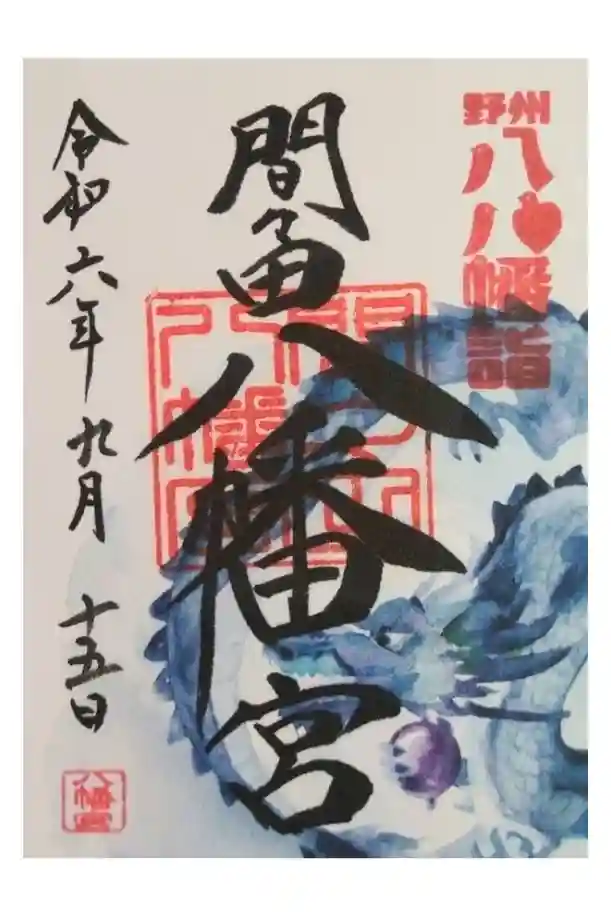 野州
八八幡詣
間々田八幡宮
令和六年 九月 十五日
八幡宮